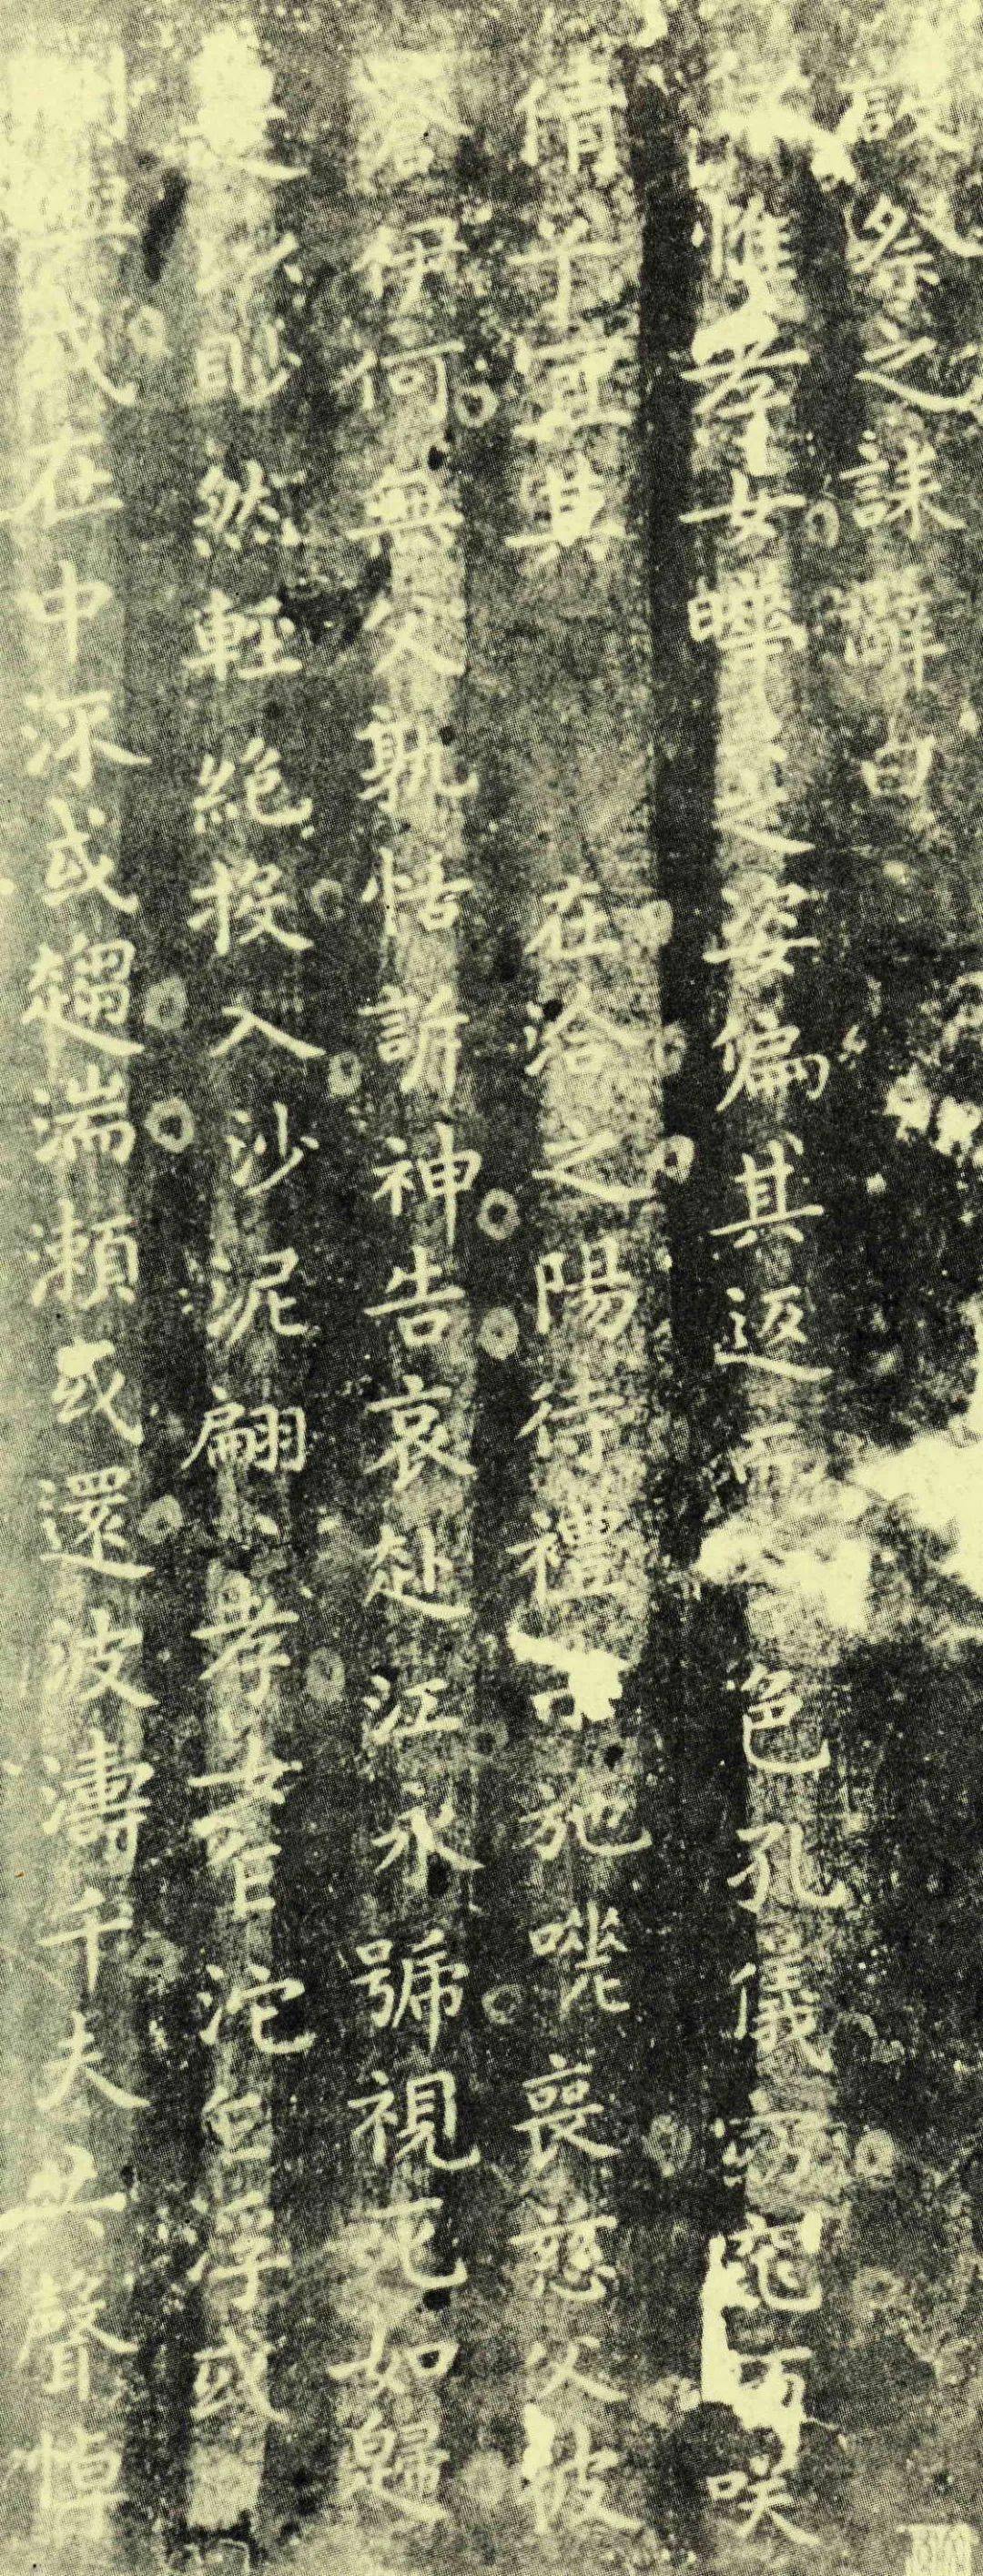 設祭之誄辭曰
惟孝女曄〻之姿偏其返而色孔儀窈窕巧咲
倩兮宜其在洽之陽待禮未施嗟喪慈父彼
蒼伊何無父孰怙訴神告哀赴江永號視死如歸
是以眇然輕絕投入沙泥翩〻孝女沱且浮或
嶼或在中流或趨湍瀨或還波濤千夫失聲悼